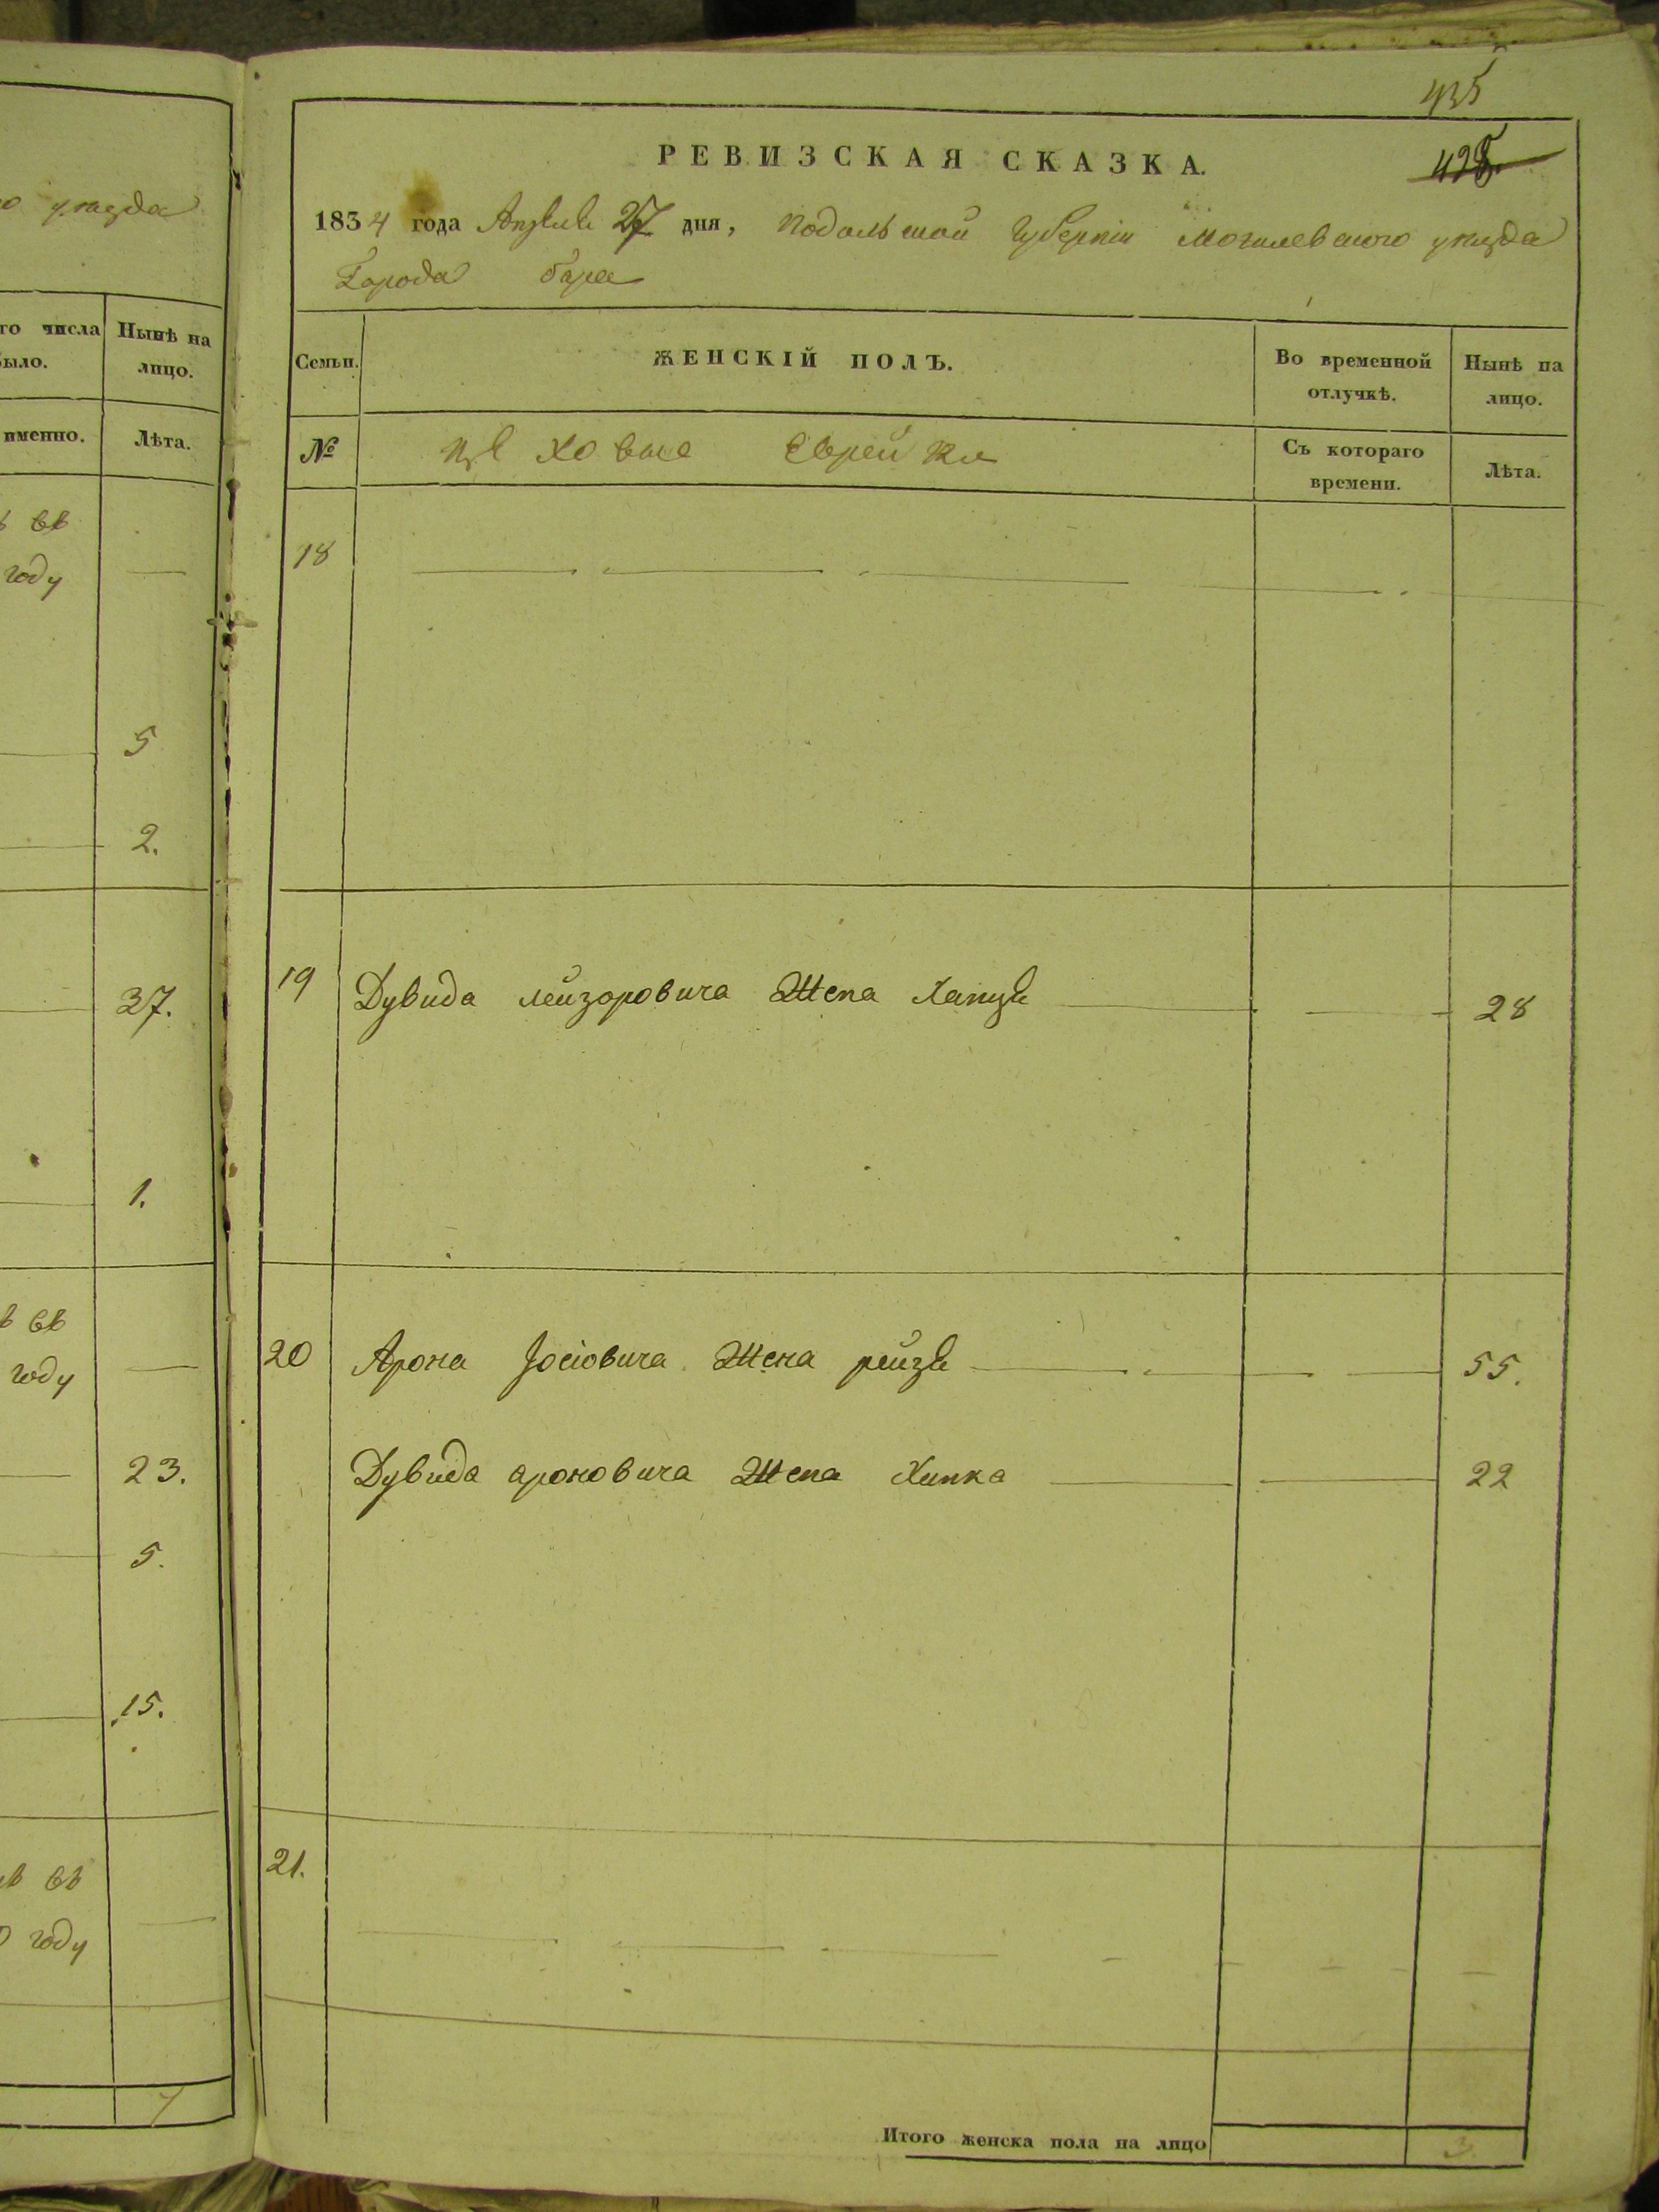 уезда
го числа
было.
Нынѣ на
лицо.
именно.
Лѣта.
въ
году
5
2.
37.
1.
въ
году
23.
5.
15.
въ
году
7
435
428.
РЕВИЗСКАЯ СКАЗКА.
1834 года Апреля 27 дня, подольской губерніи могилевского уезда
Города бара
Семьи.
ЖЕНСКІЙ ПОЛЪ.
Во временной
отлучкѣ.
Нынѣ на
лицо.
№
цеховые Еврейки
Съ котораго
времени.
Лѣта.
18
19 Дувида лейзоровича Жена Ханця 28
20 Арона Іосіовича Жена рейзя 55.
Дувида ароновича Жена Хинка 22
21.
Итого женска пола на лицо 3.